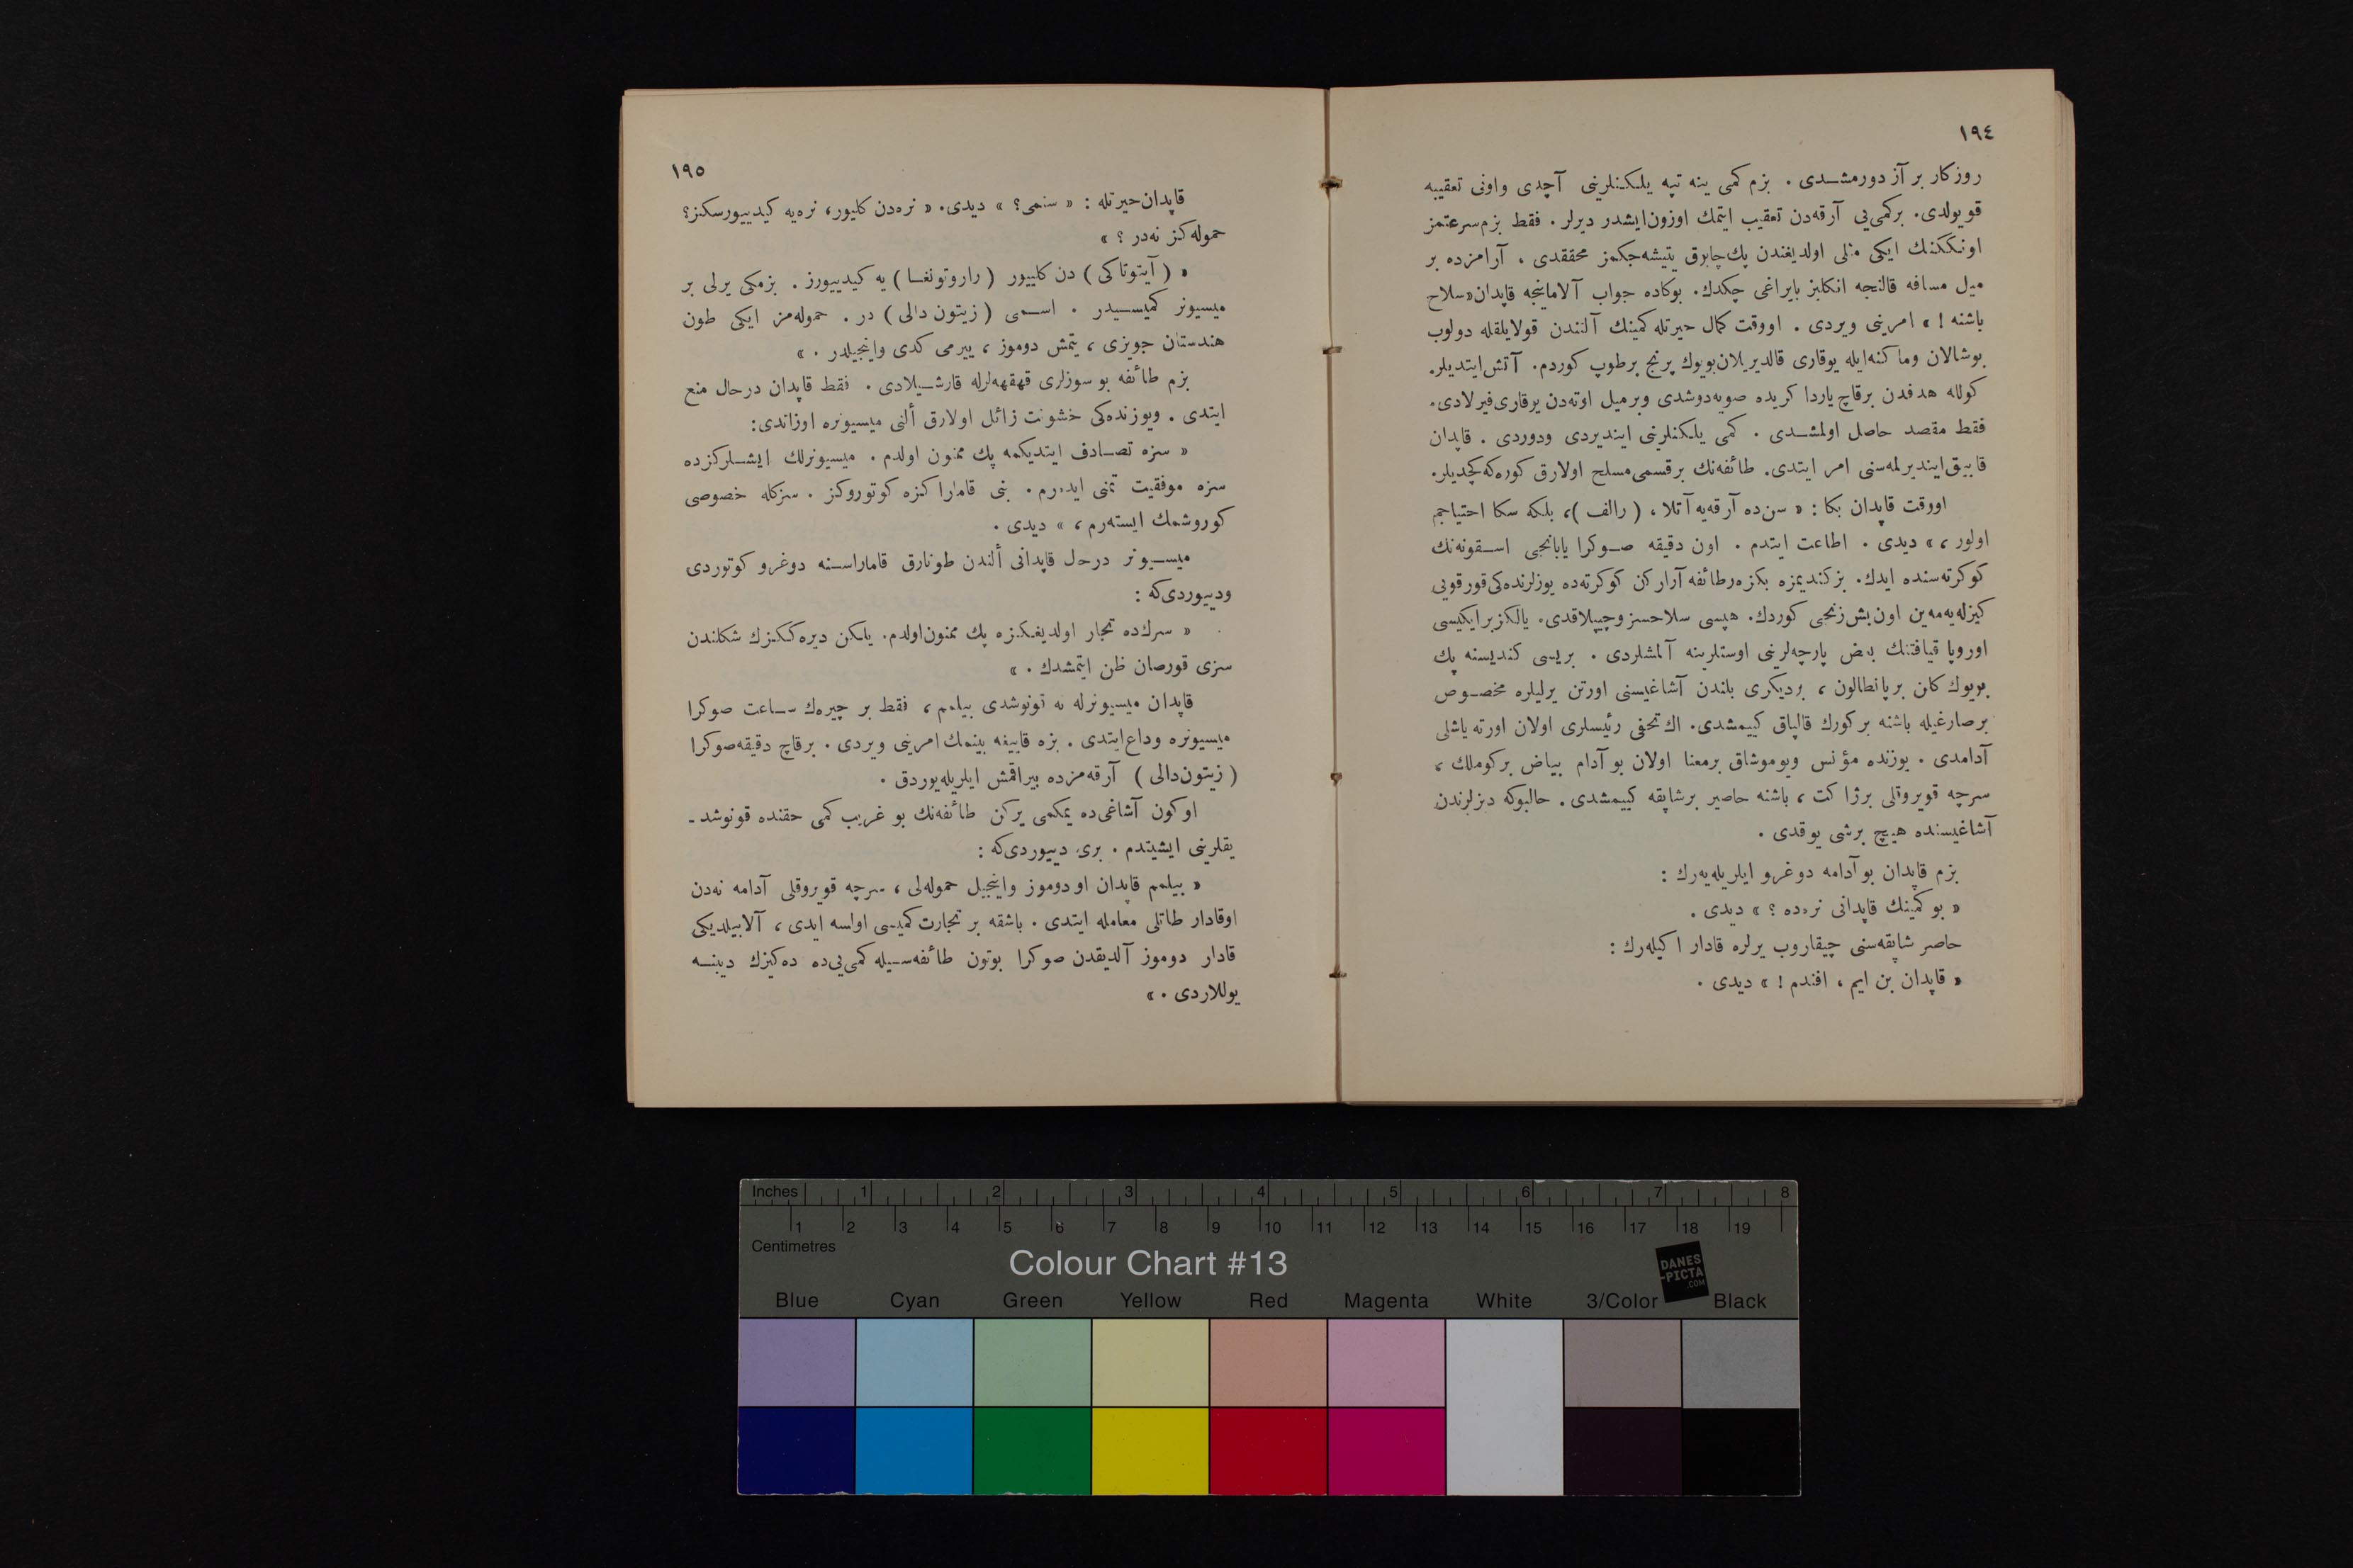 ١٩٤
روزكار بر آز دورمشدى . بزم كمى ينه تپه يلكنلرينى آچدى واونى تعقيبه
قويولدى. بركمى‌يى آرقه‌دن تعقيب ايتمك اوزون‌ايشدر ديرلر . فقط بزم‌سرعتمز
اونككنك ايكى مثلى اولديغندن پك‌چابوق يتيشه‌جكمز محققدى ، آرامزده بر
ميل مسافه قالنجه انكليز بايراغى چكدك. بوكاده جواب آلاماينجه قاپدان«سلاح
باشنه ! » امرينى ويردى . اووقت كمال حيرتله كمينك آلتندن قولايلقله دولوب
بوشالان وماكنه‌ايله يوقارى قالديريلان‌بويوك پرنج برطوپ كوردم. آتش‌ايتديلر.
كولله هدفدن برقاچ ياردا كريده صويه‌دوشدى وبرميل اوته‌دن يوقارى‌فيرلادى.
فقط مقصد حاصل اولمشدى . كمى يلكنلرينى اينديردى ودوردى . قاپدان
قاييق‌اينديرلمه‌سنى امر ايتدى. طائفه‌نك برقسمى‌مسلح اولارق كوره‌كه‌كچديلر.
اووقت قاپدان بكا : « سن‌ده آرقه‌يه آتلا ، (رالف)، بلكه سكا احتياجم
اولور ، » ديدى . اطاعت ايتدم . اون دقيقه صوكرا يابانجى اسقونه‌نك
كوكرته‌سنده ايدك. بزكنديمزه بكزه‌رطائفه آراركن كوكرته‌ده يوزلرنده‌كى‌قورقويى
كيزله‌يه‌مه‌ين اون‌بش‌زنجى كوردك. هپسى سلاحسز وچيپلاقدى. يالكزبرايكيسى
اوروپا قيافتنك بعض پارچه‌لرينى اوستلرينه آلمشلردى . بريسى كنديسنه پك
بويوك كلن برپانطالون ، برديكرى بلندن آشاغيسنى اورتن يرليلره مخصوص
برصارغيله باشنه بركورك قالپاق كييمشدى. اك تحفى رئيسلرى اولان اورته ياشلى
آدامدى . يوزنده مؤنس ويوموشاق برمعنا اولان بو آدام بياض بركوملك ،
سرچه قويروقلى برژاكت ، باشنه حاصير برشاپقه كييمشدى . حالبوكه ديزلرندن
آشاغيسنده هيچ برشى يوقدى .
بزم قاپدان بوآدامه دوغرو ايلريله‌يه‌رك :
« بو كمينك قاپدانى نره‌ده ؟ » ديدى .
حاصر شاپقه‌سنى چيقاروب يرلره قادار اكيله‌رك :
« قاپدان بن ايم ، افندم ! » ديدى .
١٩٥
قاپدان‌حيرتله : « سنمى؟ » ديدى. « نره‌دن كليور، نره‌يه كيدييورسكز؟
حموله‌كز نه‌در ؟ »
« (آيتوتاكى) دن كلييور (راروتونغا) يه كيدييورز . بزمكى يرلى بر
ميسيونر كميسيدر . اسمى (زيتون دالى) در . حموله‌مز ايكى طون
هندستان جويزى ، يتمش دوموز ، ييرمى كدى وانجيلدر . »
بزم طائفه بو سوزلرى قهقهه‌لرله قارشيلادى . فقط قاپدان درحال منع
ايتدى . ويوزنده‌كى خشونت زائل اولارق ألنى ميسيونره اوزاتدى:
« سزه تصادف ايتديكمه پك ممنون اولدم . ميسيونرلك ايشلركزده
سزه موفقيت تمنى ايدرم . بنى قاماراكزه كوتوروكز . سزكله خصوصى
كوروشمك ايسته‌رم ، » ديدى .
ميسيونر درحال قاپدانى ألندن طوتارق قاماراسنه دوغرو كوتوردى
ودييوردى‌كه :
« سزك‌ده تجار اولديغكزه پك ممنون‌اولدم. يلكن ديره‌ككزك شكلندن
سزى قورصان ظن ايتمشدك . »
قاپدان ميسيونرله نه قونوشدى بيلمم ، فقط بر چيره‌ك ساعت صوكرا
ميسيونره وداع‌ايتدى . بزه قاييغه بينمك امرينى ويردى . برقاچ دقيقه‌صوكرا
(زيتون‌دالى) آرقه‌مزده بيراقمش ايلريله‌يوردق .
اوكون آشاغى‌ده يمكمى يركن طائفه‌نك بو غريب كمى حقنده قونوشد-
يقلرينى ايشيتدم . برى دييوردى‌كه :
« بيلمم قاپدان او دوموز وانجيل حموله‌لى ، سرچه قويروقلى آدامه نه‌دن
اوقادار طاتلى معامله ايتدى . باشقه بر تجارت كميسى اولسه ايدى ، آلابيلديكى
قادار دوموز آلديقدن صوكرا بوتون طائفه‌سيله كمى‌يى‌ده ده‌كيزك ديبنه
يوللاردى . »
Inches 1 2 3 4 5 6 7 8
1 2 3 4 5 6 7 8 9 10 11 12 13 14 15 16 17 18 19
Centimetres
Colour Chart #13
DANES
-PICTA
.COM
Blue Cyan Green Yellow Red Magenta White 3/Color Black